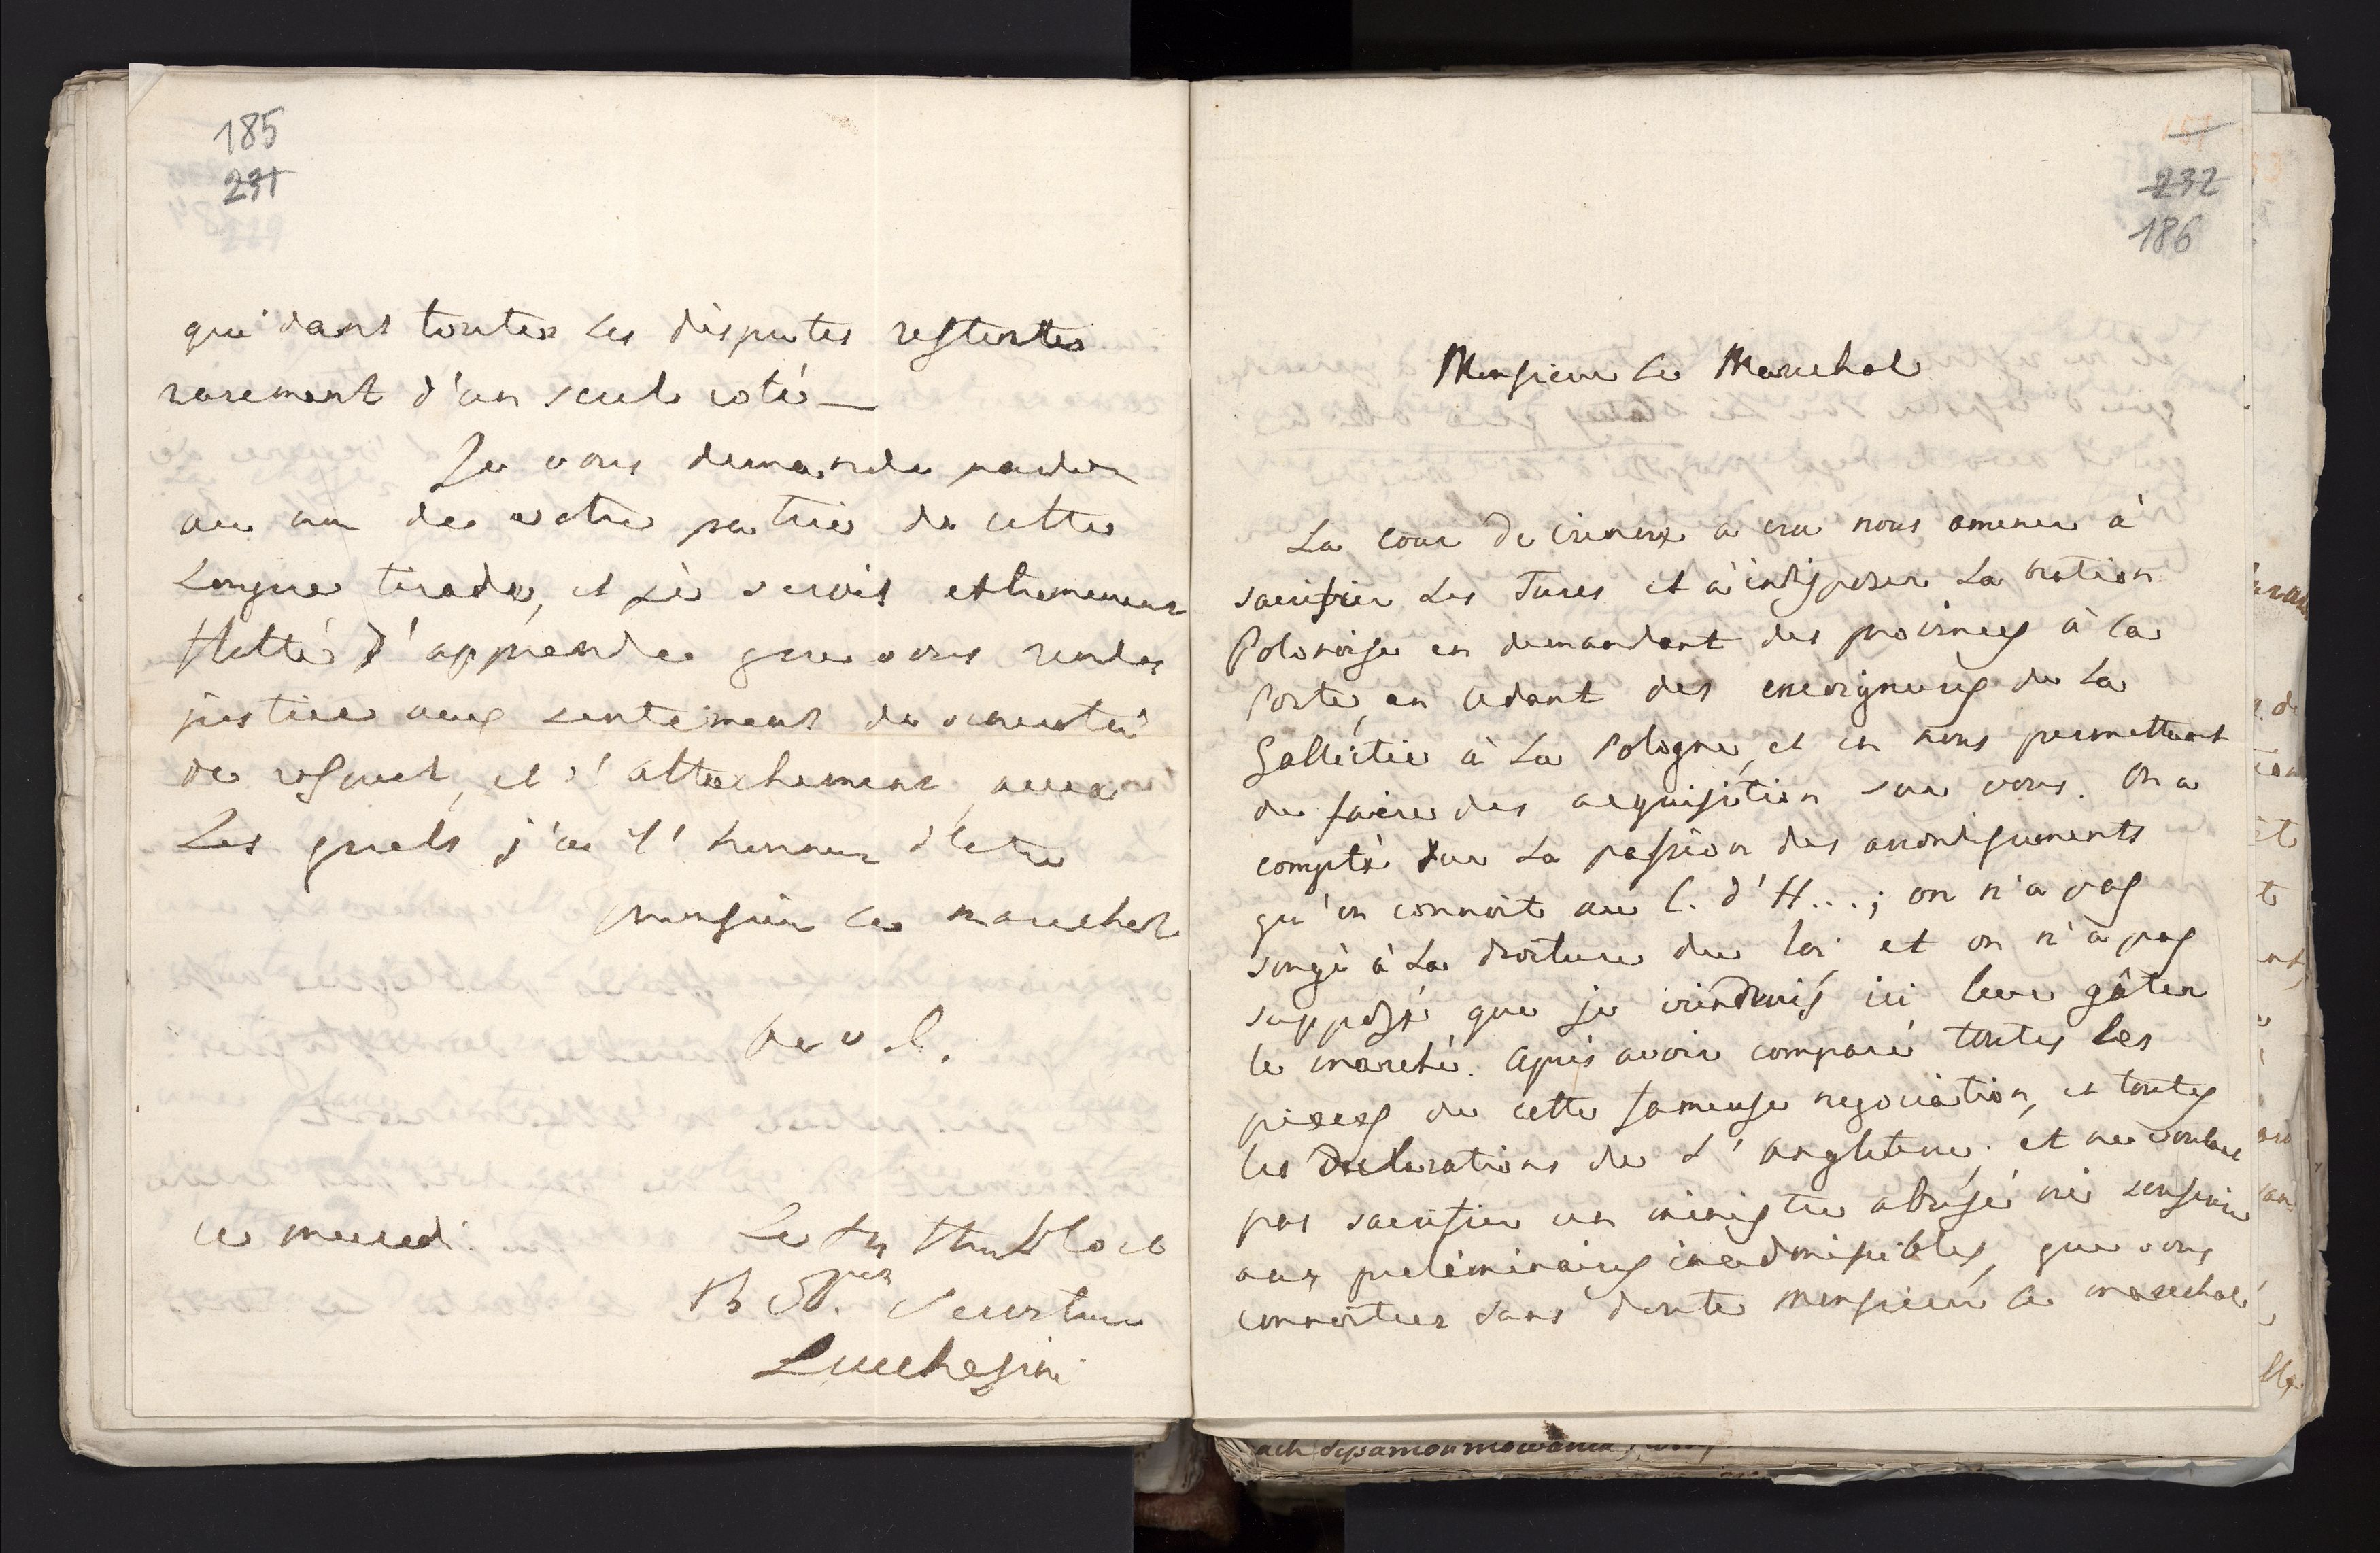 185
231
qui dans toutes les disputes restent
rarement d'un seul coté —
Je vous demande pardon
au nom de votre patrie de cette
longue tirade, et je serois extremement
flatté d'apprendre que vous rendez
justice aux sentiments de
de respect, et d'attachement, avec
les quels j'ai l'honneur d'etre
Monsieur le Marechal
de v. E.
ce mercredi
Le tres humble et
Serviteur
Lucchesini
232
186
Monsieur le Marechal
La cour de Vienne a cru nous amener à
sacrifier les Turcs et à indisposer la nation
Polonoise en demandant des provinces à la
Porte, en cedant des enseigneurs de la
Gallicie à la Pologne, et en nous permettant
de faire des acquisition sur vous. On a
compté sur la passion des arrondissements
qu'on connoit au C. d'H...; on n'a pas
songé à la droiture du Roi et on n'a pas
supposé que je viendrois ici leur gâter
le marché. Après avoir comparé toutes les
pieces de cette fameuse negociation, et toutes
les declarations de l'angleterre, et ne voulant
pas sacrifier un ministre abusé ni
aux preliminaires inadmissibles, que vous
connoitrez sans doute Monsieur le marechal,
ach